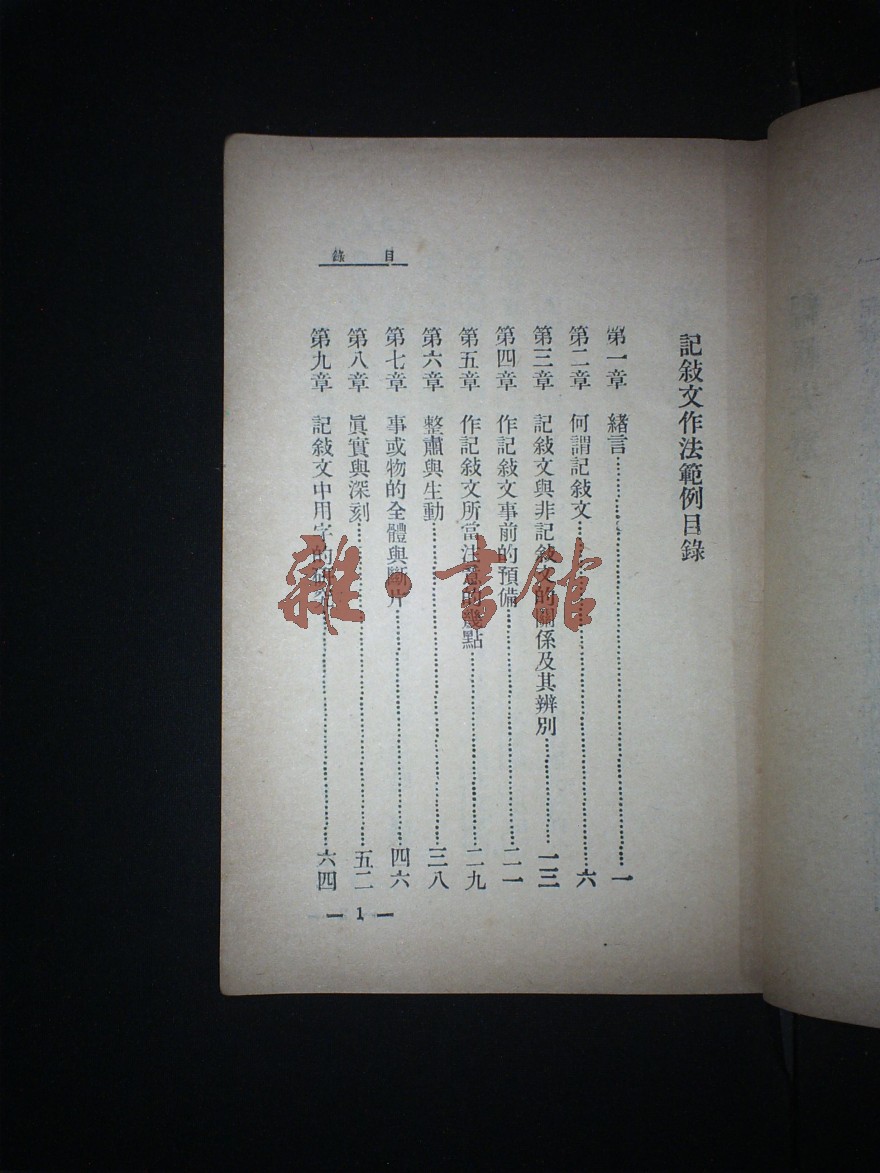 記敍文作法範例目錄
第一章 緖言……一
第二章 何謂記敍文……六
第三章 記敍文與非記敍文的關係及其辨別……一三
第四章 作記敍文事前的預備……二一
第五章 作記敍文所當注意的幾點……二九
第六章 整肅與生動……三八
第七章 事或物的全體與斷片……四六
第八章 眞實與深刻……五二
第九章 記敍文中用字的研究……六四
目錄
— 1 —
雜·書館